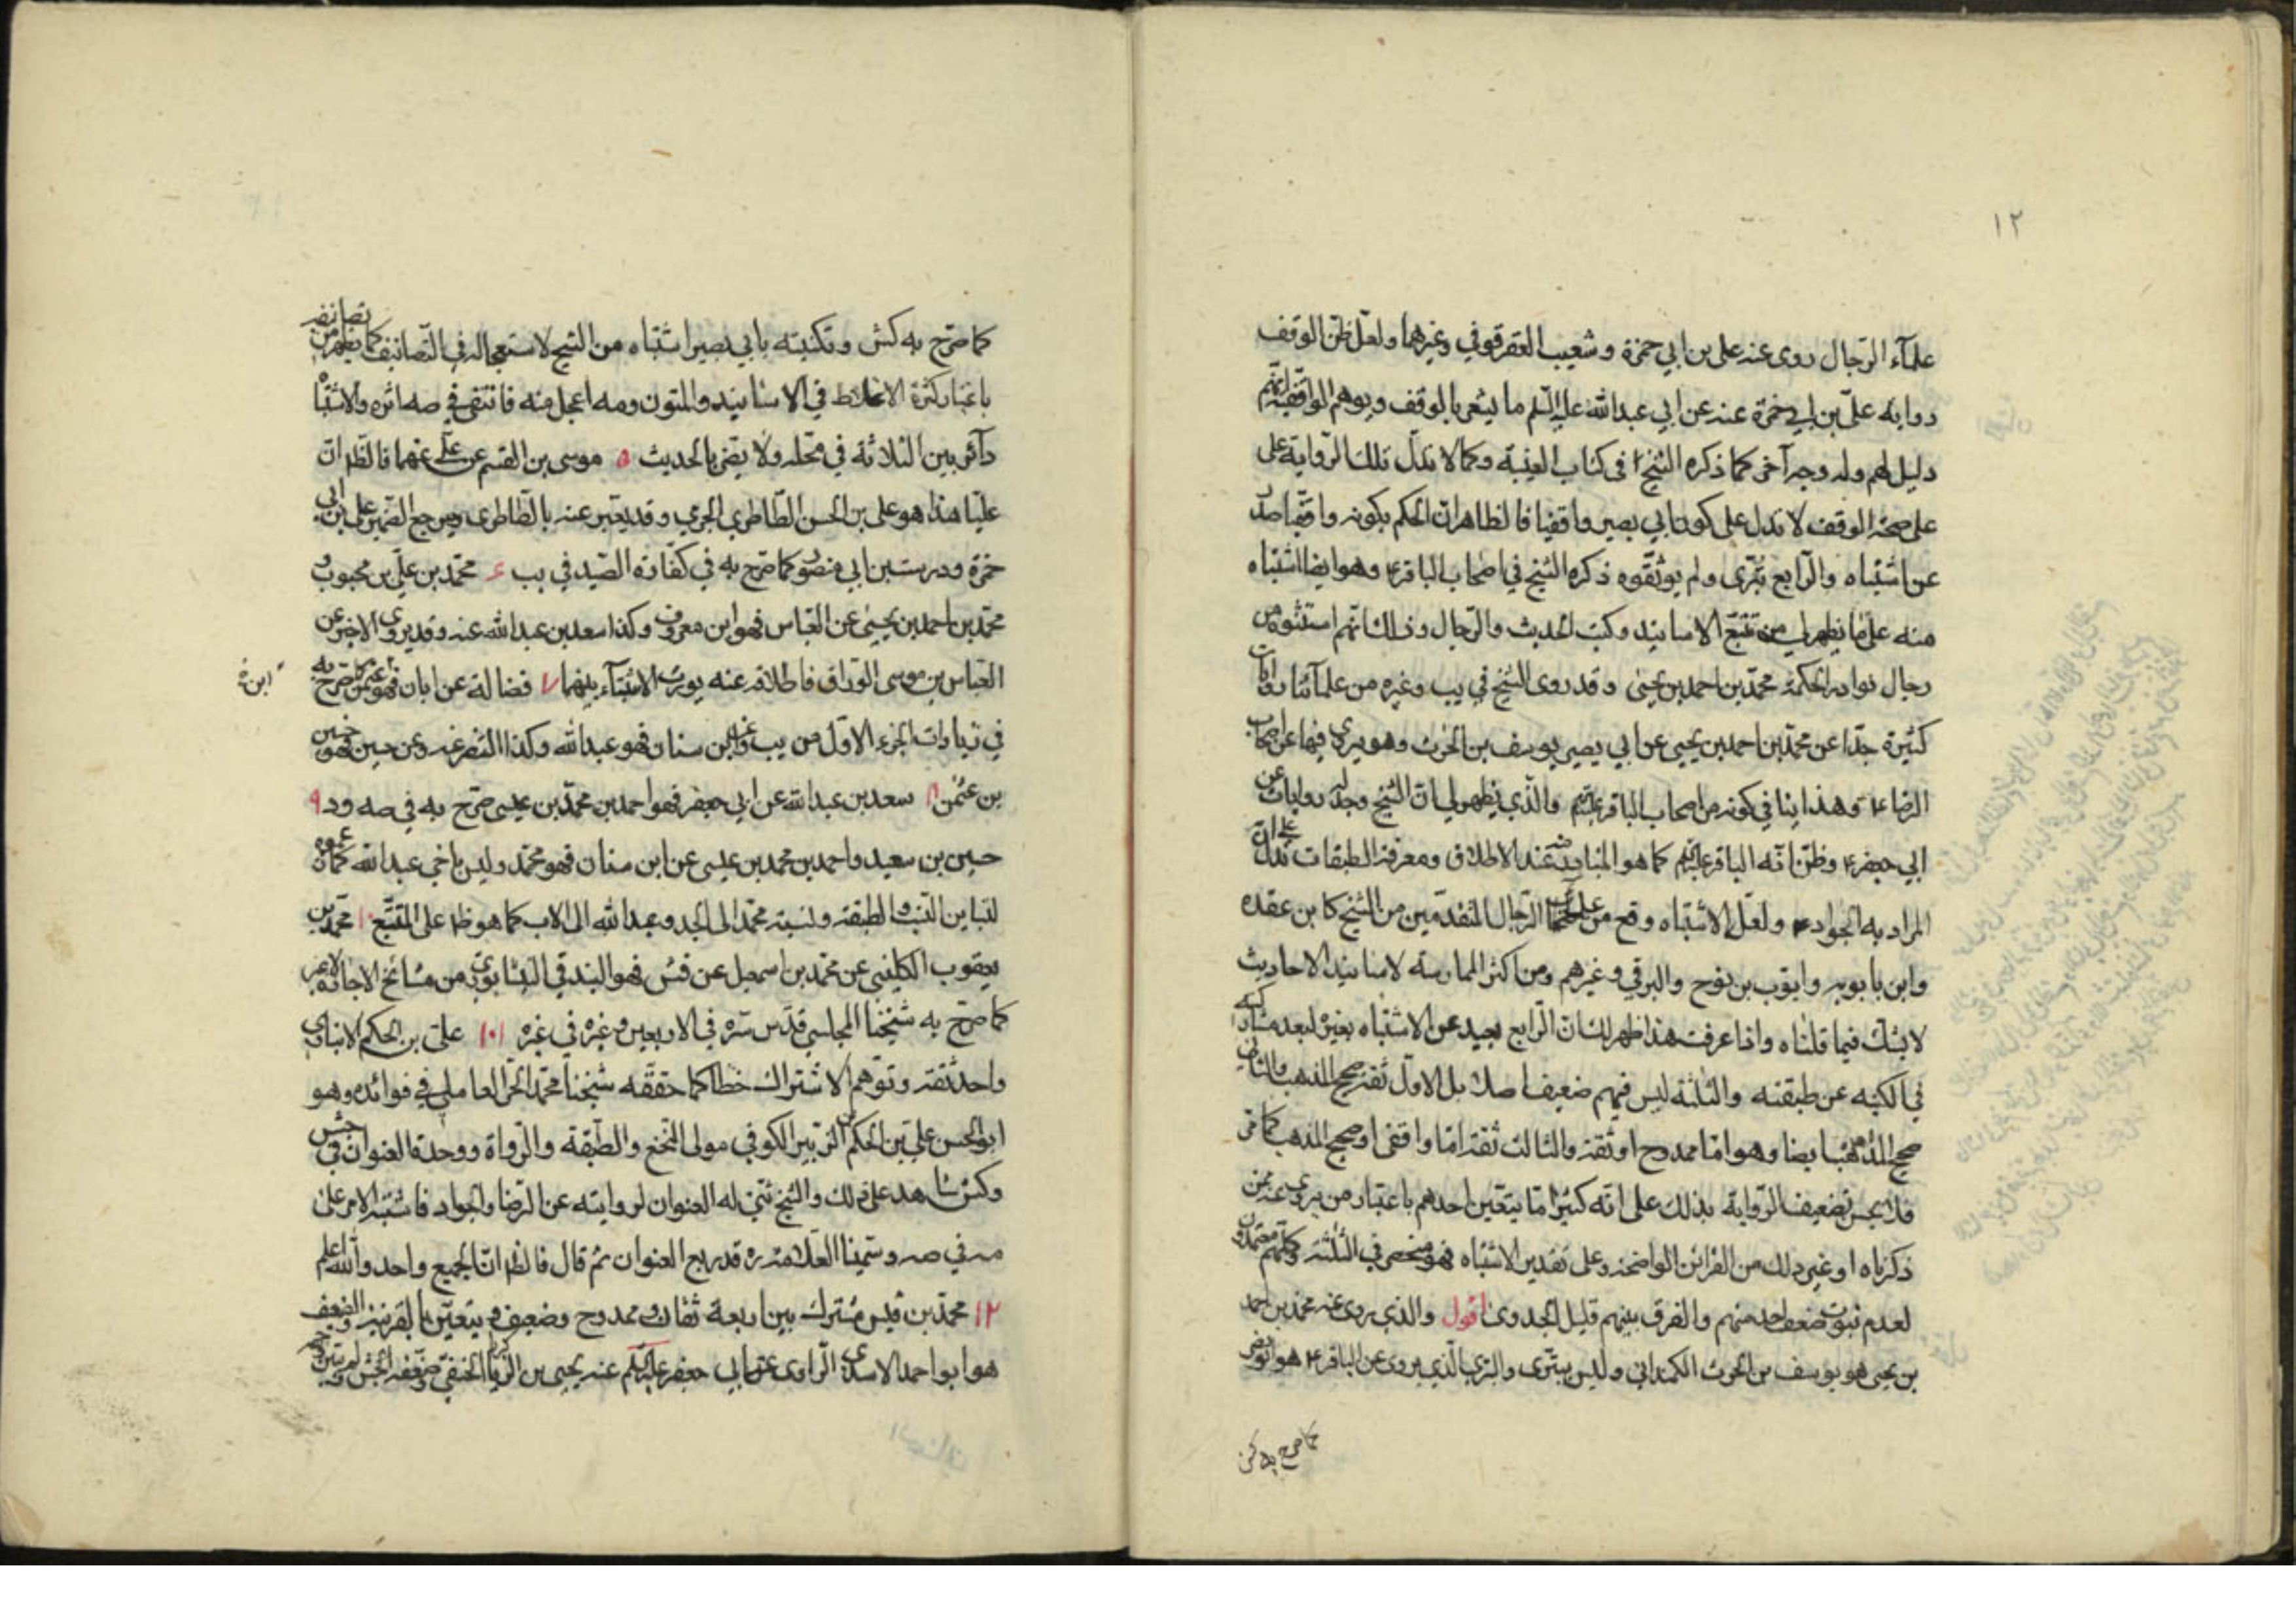 ١٢
علمآء الرّجال روى عنه علي بن ابي حمزة و شعيب العقرقوفي وغيرهما ولعلّ ظنّ الوقف
رواية عليّ بن ابي حمزة عنه عن ابي عبد الله عليه السّلم ما يشعر بالوقف ويوهم الواقفة انّهم
دليل لهم وله وجه آخر كما ذكره الشيخ في كتاب الغيبة وكما لا تدلّ تلك الرّواية على
على صحة الوقف لا تدل على كون ابي بصير واقفيا فالظاهر انّ الحكم بكونه واقفيا صدر
عن اشتباه والرّابع بترى ولم يوثّقوه ذكره الشيخ في اصحاب الباقر ع وهو ايضا اشتباه
منه على ما يظهر لي من تتبّع الاسانيد وكتب الحديث والرّجال وذلك انّهم استثنوه من
رجال نوادر الحكمة محمّد بن احمد بن يحيى وقد روى الشيخ في يب وغيره من علمآئنا روايات
كثيرة جدّا عن محمّد بن احمد بن يحيى عن ابي بصير يوسف بن الحرث وهو يروي فيها عن اصحاب
الرضا ع وهذا ينافي كونه من اصحاب الباقر عليه السلم والّذي يظهر لي انّ الشيخ وجد له روايات عن
ابي جعفر ع وظنّ انّه الباقر عليه السلم كما هو المتبادر عند الاطلاق ومعرفة الطبقات تدلّ على انّ
المراد به الجواد ع ولعلّ الاشتباه وقع من علمآء الرّجال المتقدّمين من الشيخ كابن عقده
وابن بابويه وايّوب بن نوح والبرقي وغيرهم ومن اكثر الممارسة لاسانيد الاحاديث
لا يشكّ فيما قلناه واذا عرفت هذا ظهر لك انّ الرّابع بعيد عن الاشتباه بغيره لبعد مشاركيه
في الكنيه عن طبقته والثلثة ليس فيهم ضعيف اصلا بل الاوّل ثقة صحيح المذهب والثاني
صحيح المذهب ايضا وهو امّا ممدوح او ثقة والثالث ثقة امّا واقفى او صحيح المذهب كما مر
فلا يحسن تضعيف الرّواية بذلك على انّه كثيرا مّا يتعيّن احدهم باعتبار من يروى عنه ممّن
ذكرناه او غير ذلك من القرائن الواضحة وعلى تقدير الاشتباه فهو منحصر في الثلثة وكلّهم معتمدون
لعدم ثبوت ضعف احد منهم والفرق بينهم قليل الجدوى اقول والذي يروى عنه محمّد بن احمد
بن يحيى هو يوسف بن الحرث الكمنداني وليس ببترى والبترى الّذي يروى عن الباقر ع هو ابو نصر
كما صرح به كش
كما صرّح به كش وتكنيته بابي بصير اشتباه من الشيخ لاستعجاله في التّصانيف كما يظهر من تصانيفه
باعتبار كثرة الاغلاط في الاسانيد والمتون ومه اعجل منه فانتفى في صه اثره والاشتباه
دآئر بين الثلاثة في محلّه ولا يضرّ بالحديث ٥ موسى بن القسم عن علي عنهما فالظ انّ
عليّا هذا هو علي بن الحسن الطّاطري الجرمي وقد يعبّر عنه بالطّاطرى ويرجع الضّمير على بن ابي
حمزة ودرست بن ابي منصور كما صرّح به في كفّارة الصّيد في يب ٦ محمّد بن عليّ بن محبوب و
محمّد بن احمد بن يحيى عن العبّاس فهو ابن معروف وكذا سعد بن عبد الله عنه وقد يروى الاخير عن
العبّاس بن موسى الورّاق فاطلاقه عنه يورث الاشتباه بينهما ٧ فضالة عن ابان فهو ابن عثمن كما صرّح به
في زيادات الجزء الاوّل من يب وعن ابن سنان فهو عبد الله وكذا النضر عنه وعن حسين فهو حسين
بن عثمن ٨ سعد بن عبد الله عن ابي جعفر فهو احمد بن محمّد بن عيسى صرّح به في صه ود ٩
حسين بن سعيد واحمد بن محمد بن عيسى عن ابن سنان فهو محمّد وليس باخي عبد الله
لتباين النسب والطبقة ونسبة محمّد الى الجد وعبد الله الى الاب كما هو ظ على المتتبّع ١٠ محمّد بن
يعقوب الكليني عن محمّد بن اسمعيل عن فضل فهو البندقي النيسابوري من مشائخ الاجازة
كما صرّح به شيخنا المجلسي قدّس سّره في الاربعين وغيره في غيره ١١ علىّ بن الحكم الانبارى
واحد ثقة وتوهم الاشتراك خطا كما حققّه شيخنا محمّد الحرّ العاملي في فوائده وهو
ابو الحسن علي بن الحكم بن الزّبير الكوفي مولى النّخع والطّبقة والرّواة ووحدة العنوان في جش
وكش شاهد على ذلك والشيخ ثنى له العنوان لروايته عن الرّضا والجواد فاشتبه الامر على
مه في صه وسميّنا العلّامة ره قد ربع العنوان ثم قال فالظ انّ الجميع واحد والله اعلم
١٢ محمّد بن قيس مشترك بين اربعة ثقتان وممدوح وضعيف ويتعيّن بالقرينة والضعيف
هو ابو احمد الاسدى الرّاوى عن ابي جعفر عليه السلم عنه يحيى بن زكريا الحنفي ضعّفه